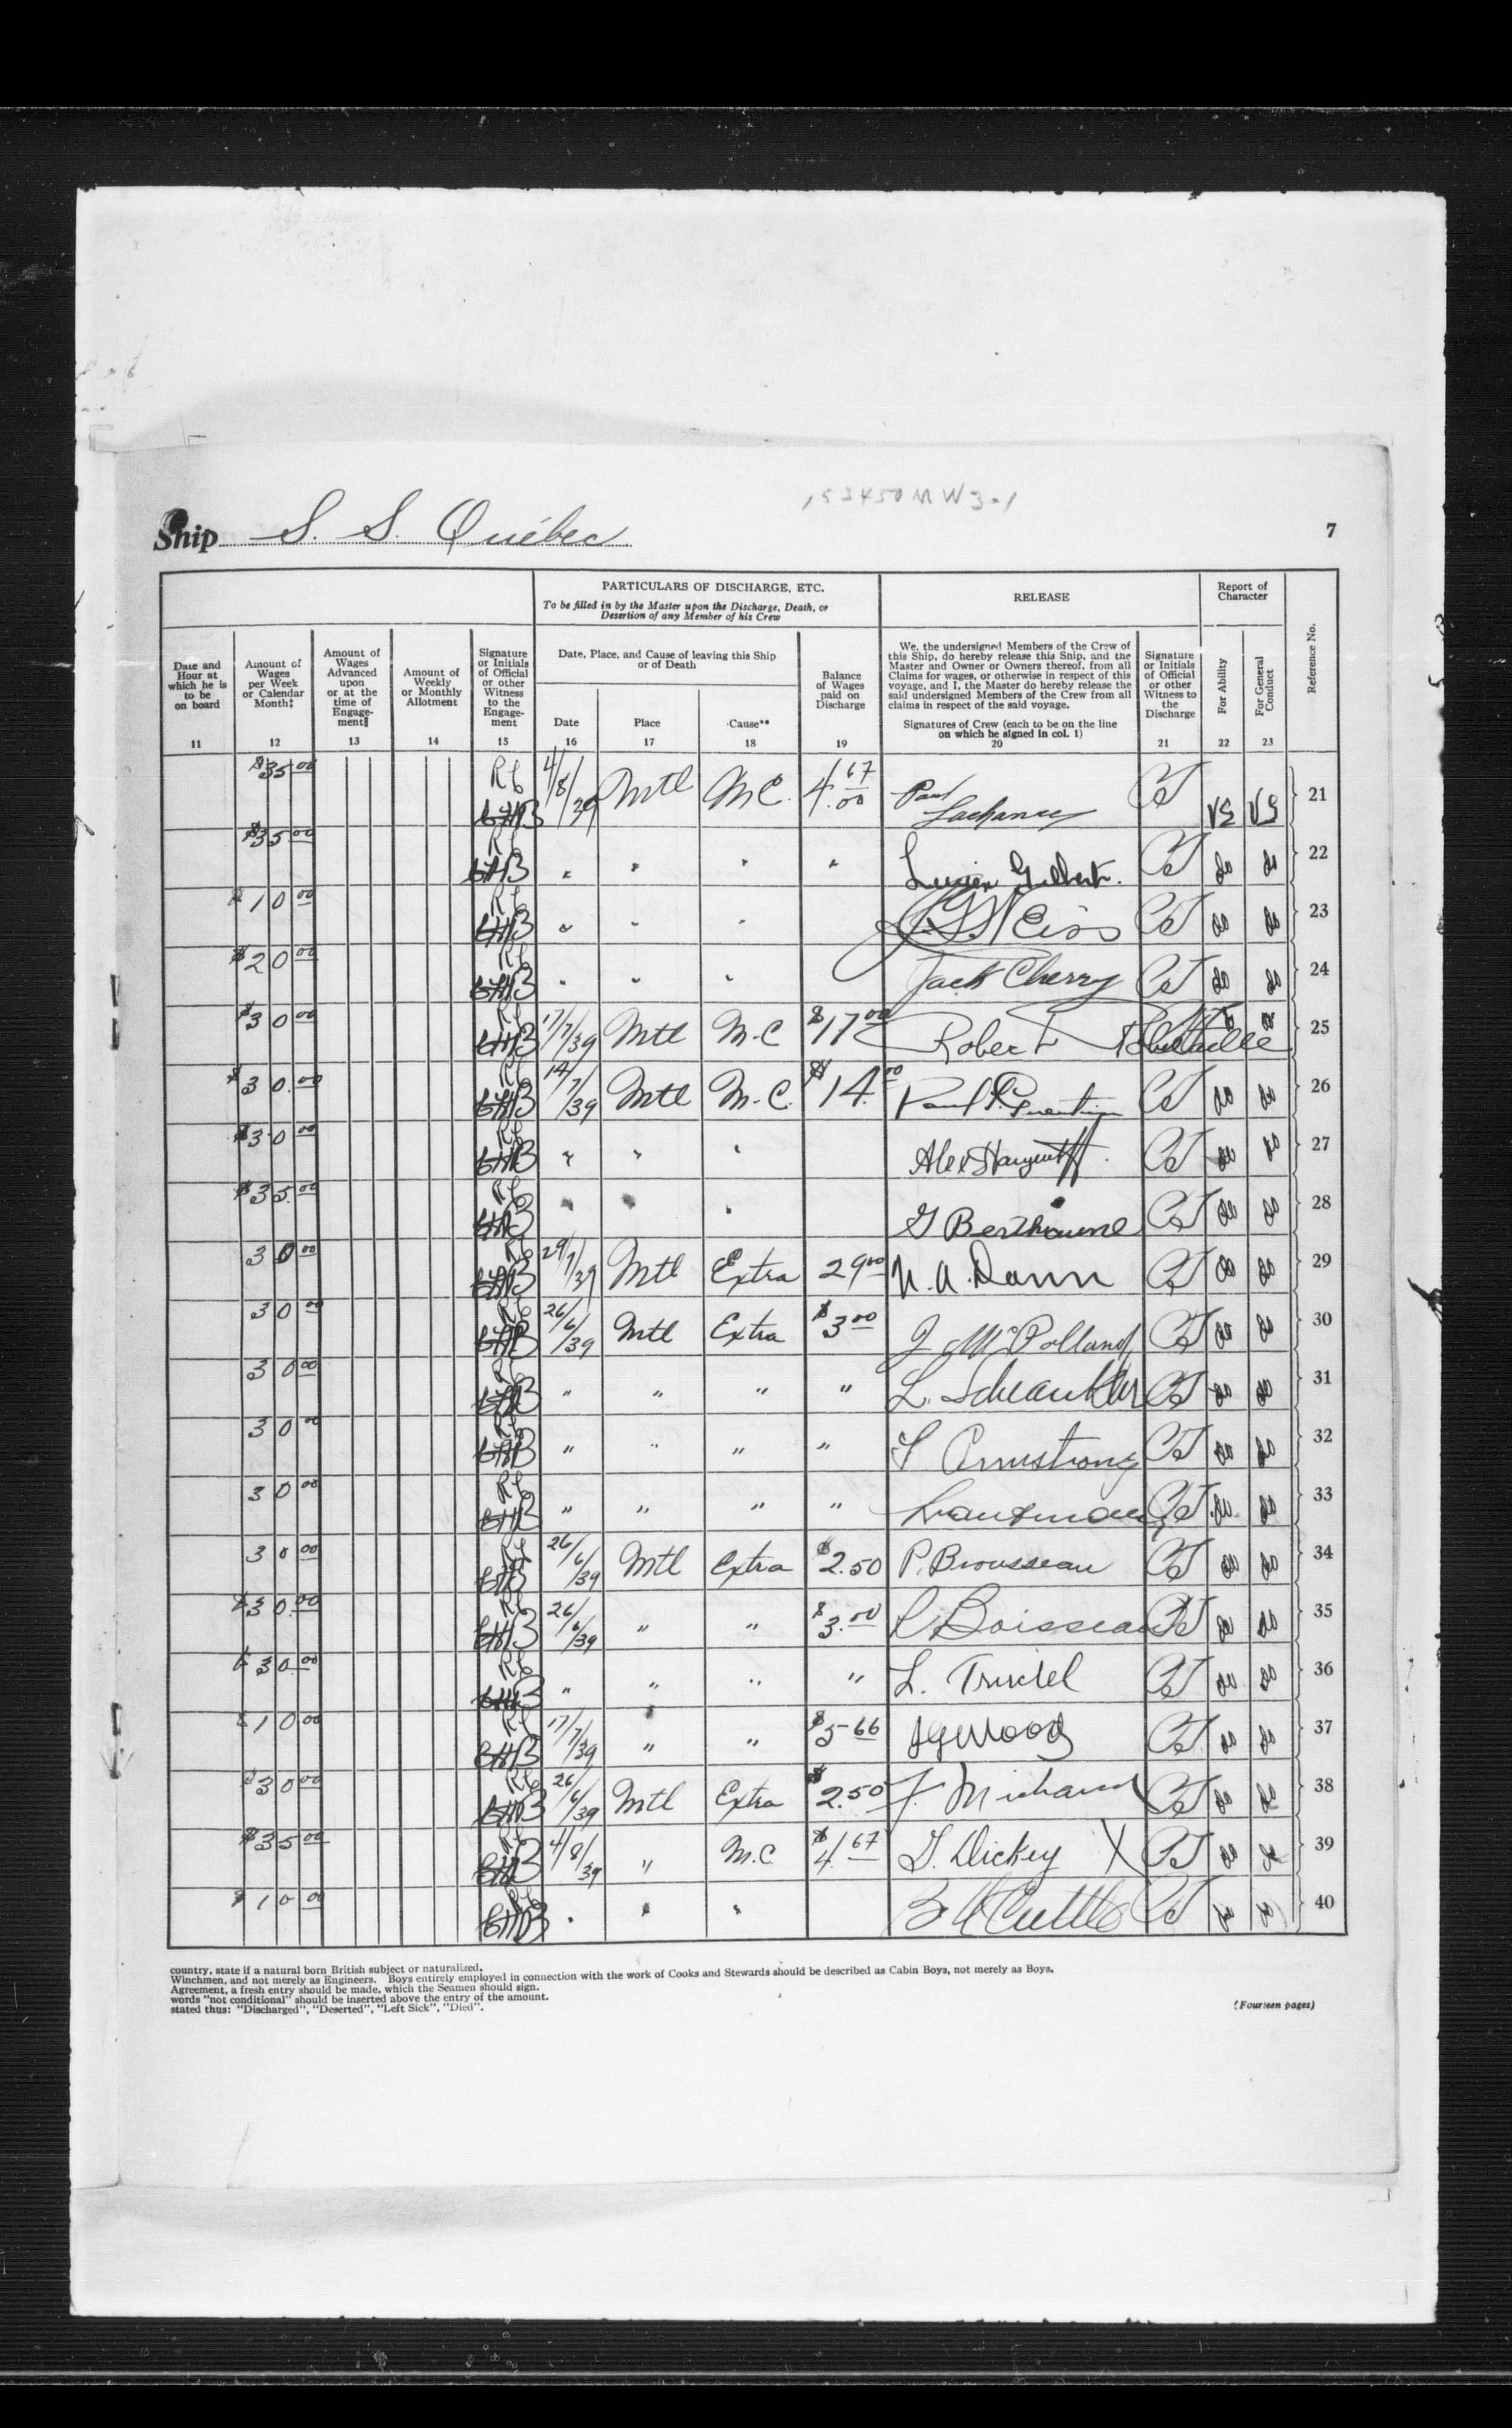 153450 M W 3-1
Ship S. S. Québec 7
PARTICULARS OF DISCHARGE, ETC.
To be filled in by the Master upon the Discharge, Death, or
Desertion of any Member of his Crew
RELEASE
Report of
Character
Date and
Hour at
which he is
to be
on board
11
Amount of
Wages
per Week
or Calendar
Month‡
12
Amount of
Wages
Advanced
upon
or at the
time of
Engage-
ment‖
13
Amount of
Weekly
or Monthly
Allotment
14
Signature
or Initials
of Official
or other
Witness
to the
Engage-
ment
15
Date, Place, and Cause of leaving this Ship
or of Death
Date
16
Place
17
Cause**
18
Balance
of Wages
paid on
Discharge
19
We, the undersigned Members of the Crew of
this Ship, do hereby release this Ship, and the
Master and Owner or Owners thereof, from all
Claims for wages, or otherwise in respect of this
voyage, and I, the Master do hereby release the
said undersigned Members of the Crew from all
claims in respect of the said voyage.
Signatures of Crew (each to be on the line
on which he signed in col. 1)
20
Signature
or Initials
of Official
or other
Witness to
the
Discharge
21
For Ability
22
For General
Conduct
23
Reference No.
$35 00 4/8/39 Mtl M.C. 4.67 Paul Lachance VG VG 21
$35 00 " " " " Lucien Gilbert. do do 22
$10 00 " " " do do 23
$20 00 " " " Jack Cherry do do 24
$30 00 17/7/39 Mtl M.C $17 00 Robert do do 25
$30.00 14/7/39 Mtl M.C. $14.00 Paul do do 26
$30 00 " " " Alex do do 27
$35.00 " " " G do do 28
30 00 29/7/39 Mtl Extra 29 00 do do 29
30 00 26/6/39 Mtl Extra $3 00 J do do 30
30 00 " " " " L. do do 31
30 00 " " " " Armstrong do do 32
30 00 " " " " do do 33
30 00 26/6/39 Mtl Extra $2.50 P. Brousseau do do 34
$30.00 26/6/39 " " $3.00 Boisseau do do 35
$30.00 " " " " L. Trudel do do 36
$10 00 17/7/39 " " $5 66 Wood do do 37
$30 00 26/6/39 Mtl Extra $2.50 J. Michaud do do 38
$35 00 4/8/39 " M.C. $4.67 G. Dickey X do do 39
$10 00 " " " do do 40
country, state if a natural born British subject or naturalized.
Winchmen, and not merely as Engineers. Boys entirely employed in connection with the work of Cooks and Stewards should be described as Cabin Boys, not merely as Boys.
Agreement, a fresh entry should be made, which the Seamen should sign.
words "not conditional" should be inserted above the entry of the amount.
stated thus: "Discharged", "Deserted", "Left Sick", "Died".
(Fourteen pages)